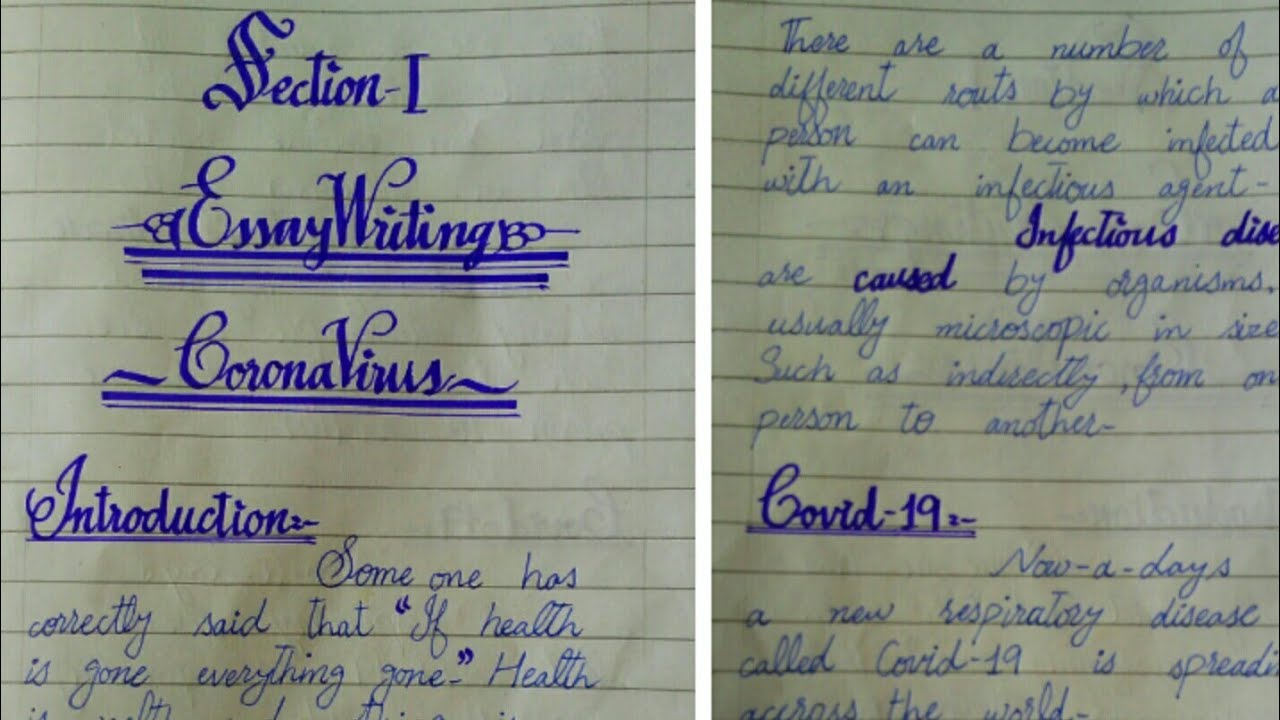 Section-I
Essay Writing
Corona Virus
Introduction:-
Some one has
correctly said that "If health
is gone everything gone-" Health
There are a number of
different routs by which a
person can become infected
with an infectious agent-
Infectious dise
are caused by organisms.
usually microscopic in size
Such as indirectly, from on
person to another-
Covid-19:-
Now-a-days
a new respiratory disease
called Covid-19 is spreadi
accross the world.-